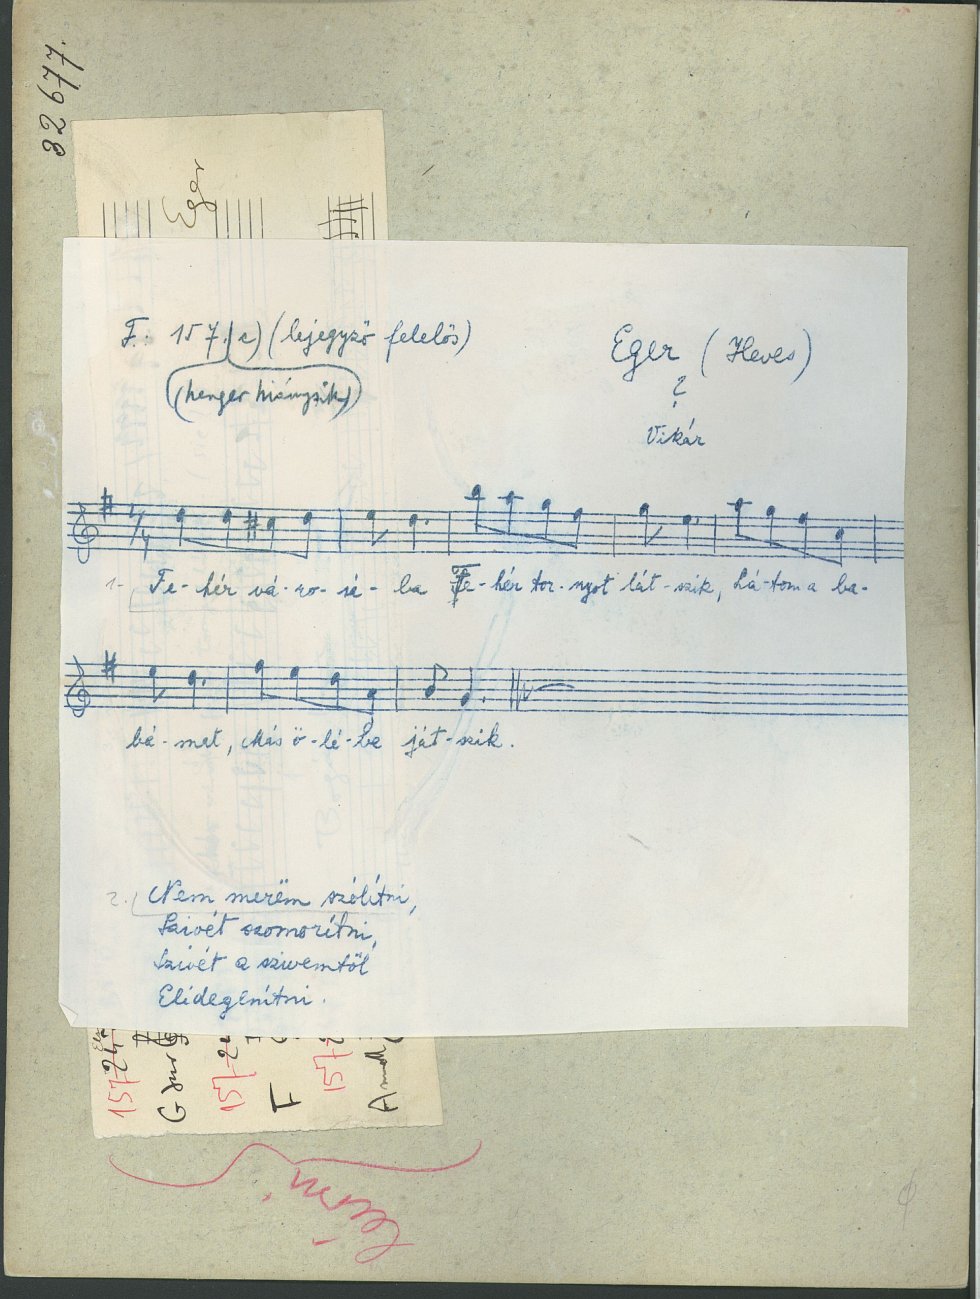 32677.
Eger
F. 157. c) (lejegyző felelős)
(henger hiányzik)
Eger (Heves)
?
Vikár
1- Fe-hér vá-ro-sé-ba Fe-hér tor-nyot lát-szik, Lá-tom a ba-
bá-mat, Más ö-lé-be ját-szik.
2. Nem merëm szólítni,
Szivét szomorítni,
Szivét a szivemtől
Elidegënítni.
157
157
157
leírni